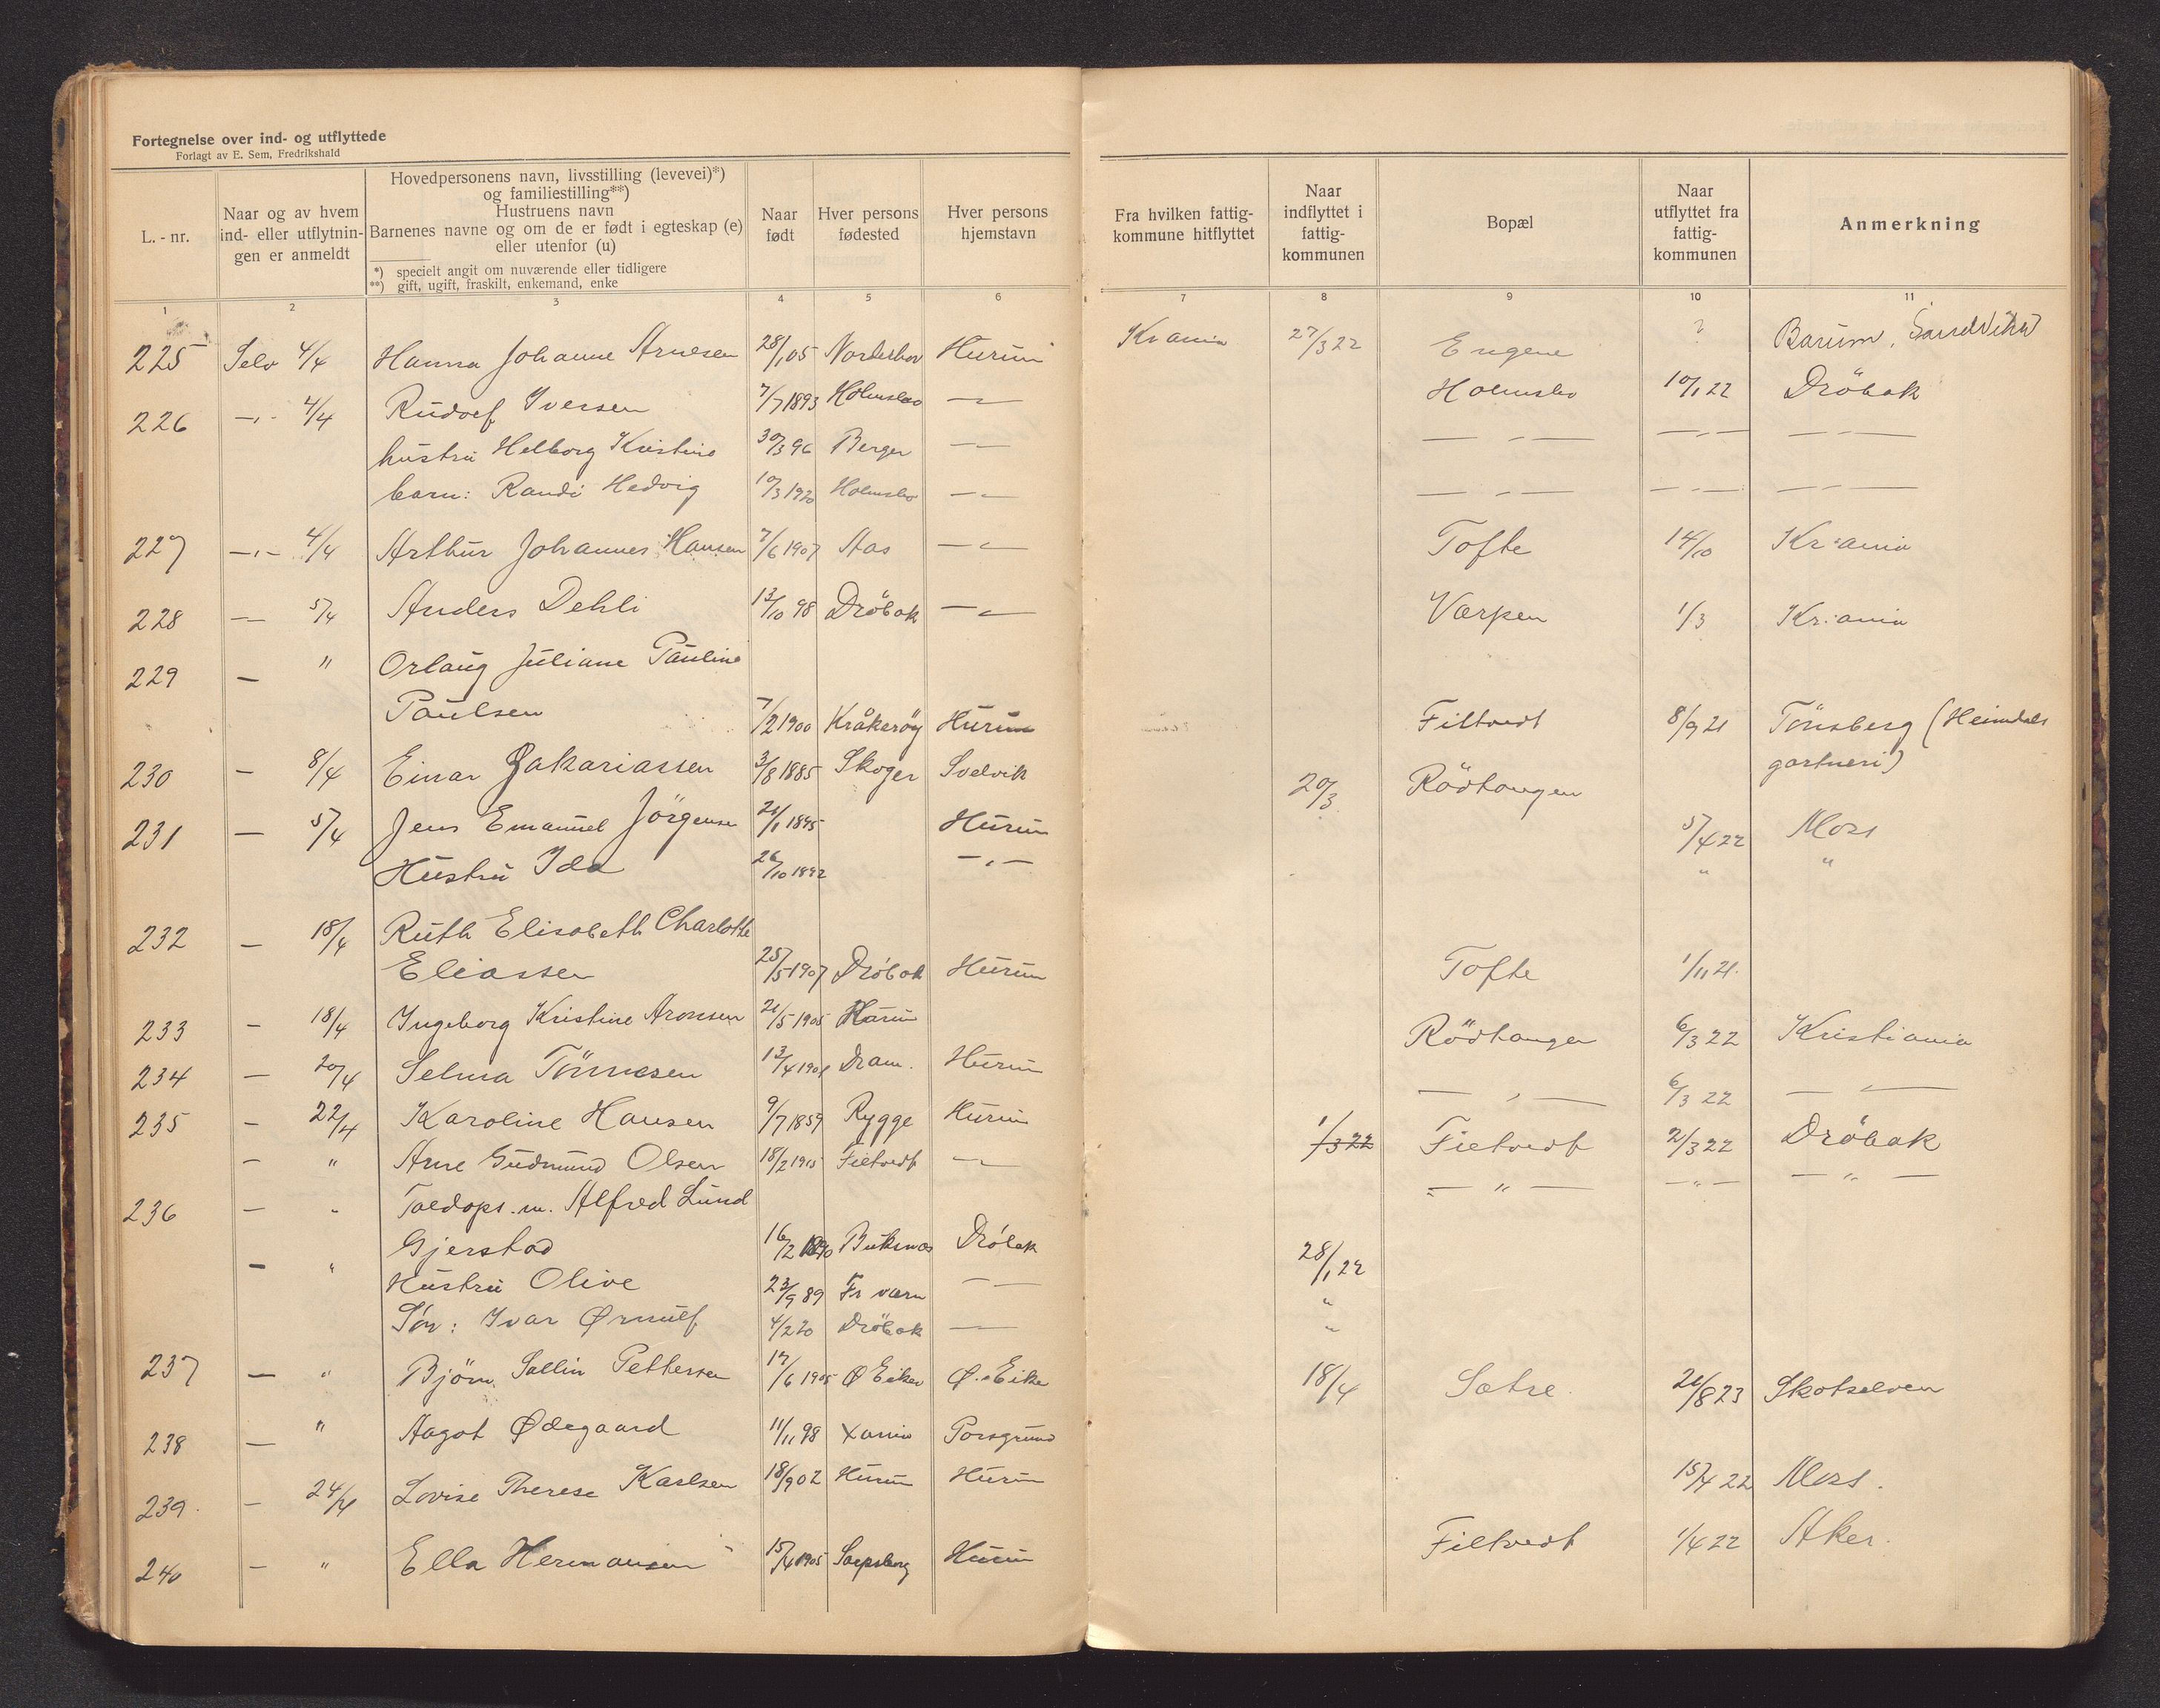 Fortegnelse over ind- og utflyttede
Forlagt av E. Sem, Fredrikshald
L. - nr.
Naar og av hvem
ind- eller utflytnin-
gen er anmeldt
Hovedpersonens navn, livsstilling (levevei)*)
og familiestilling**)
Hustruens navn
Barnenes navne og om de er født i egteskap (e)
eller utenfor (u)
*) specielt angit om nuværende eller tidligere
**) gift, ugift, fraskilt, enkemand, enke
Naar
født
Hver persons
fødested
Hver persons
hjemstavn
Fra hvilken fattig-
kommune hitflyttet
Naar
indflyttet i
fattig-
kommunen
Bopæl
Naar
utflyttet fra
fattig-
kommunen
Anmerkning
1 2 3 4 5 6 7 8 9 10 11
225 Selv 4/4 Hanna Johanne Arnesen 28/1 05 Norderhov Hurum Krania 27/3 22 Engene ? Barum, Sandvika
226 -"- 4/4 Rudolf Iversen 7/7 1893 Holmsbo -"- Holmsbo 10/1 22 Dröbak
hustru Helborg Kristine 30/3 96 Berger -"- -"- -"- -"-
barn: Randi Hedvig 10/3 1920 Holmsbo -"- -"- -"- -"-
227 -"- 4/4 Arthur Johannes Hansen 7/6 1907 Aas -"- Tofte 14/10 Kr:ania
228 - 5/4 Anders Dehli 13/10 98 Dröbak -"- Værpen 1/3 Kr:ania
229 - " Orlaug Juliane Pauline
Paulsen 7/2 1900 Kråkeröy Hurum Filtvedt 8/9 21 Tönsberg (Heimdals
gartneri)
230 - 8/4 Einar Zakariassen 3/8 1885 Skoger Svelvik 20/3 Rödtangen
231 - 5/4 Jens Emanuel Jörgensen 21/1 1895 Hurum 5/4 22 Moss
Hustru Ida 26/10 1892 -"- " "
232 - 18/4 Ruth Elisabeth Charlotte
Eliassen 25/5 1907 Dröbak Hurum Tofte 1/11 21.
233 - 18/4 Ingeborg Kristine Aronsen 21/5 1905 Hurum Rödtangen 6/3 22 Kristiania
234 - 20/4 Selma Tönnesen 13/4 1901 Dram. Hurum -"- 6/3 22 -"-
235 - 22/4 Karoline Hansen 9/7 1859 Rygge Hurum 1/3 22 Filtvedt 2/3 22 Dröbak
- " Arne Gudmund Olsen 18/2 1915 Filtvedt -"- -"- -"- -"-
236 - " Toldops.m. Alfred Lund
Gjerstad 16/2 1890 Buksnæs Dröbak 28/1 22
- " Hustru Olive 23/9 89 Fr værn -"- "
Sön: Ivar Ørnulf 4/2 20 Dröbak - "
237 - " Björn Sollin Pettersen 17/6 1905 Ø Eiker Ø. Eiker 18/4 Sætre. 21/8 23 Skotselven
238 - " Aagot Ødegaard 11/11 98 Xania Porsgrund
239. - 24/4 Lovise Therese Karlsen 18/9 02 Hurum Hurum 15/4 22 Moss.
240 - " Ella Hermansen 15/4 1905 Sarpsborg Hurum Filtvedt 1/4 22 Aker.